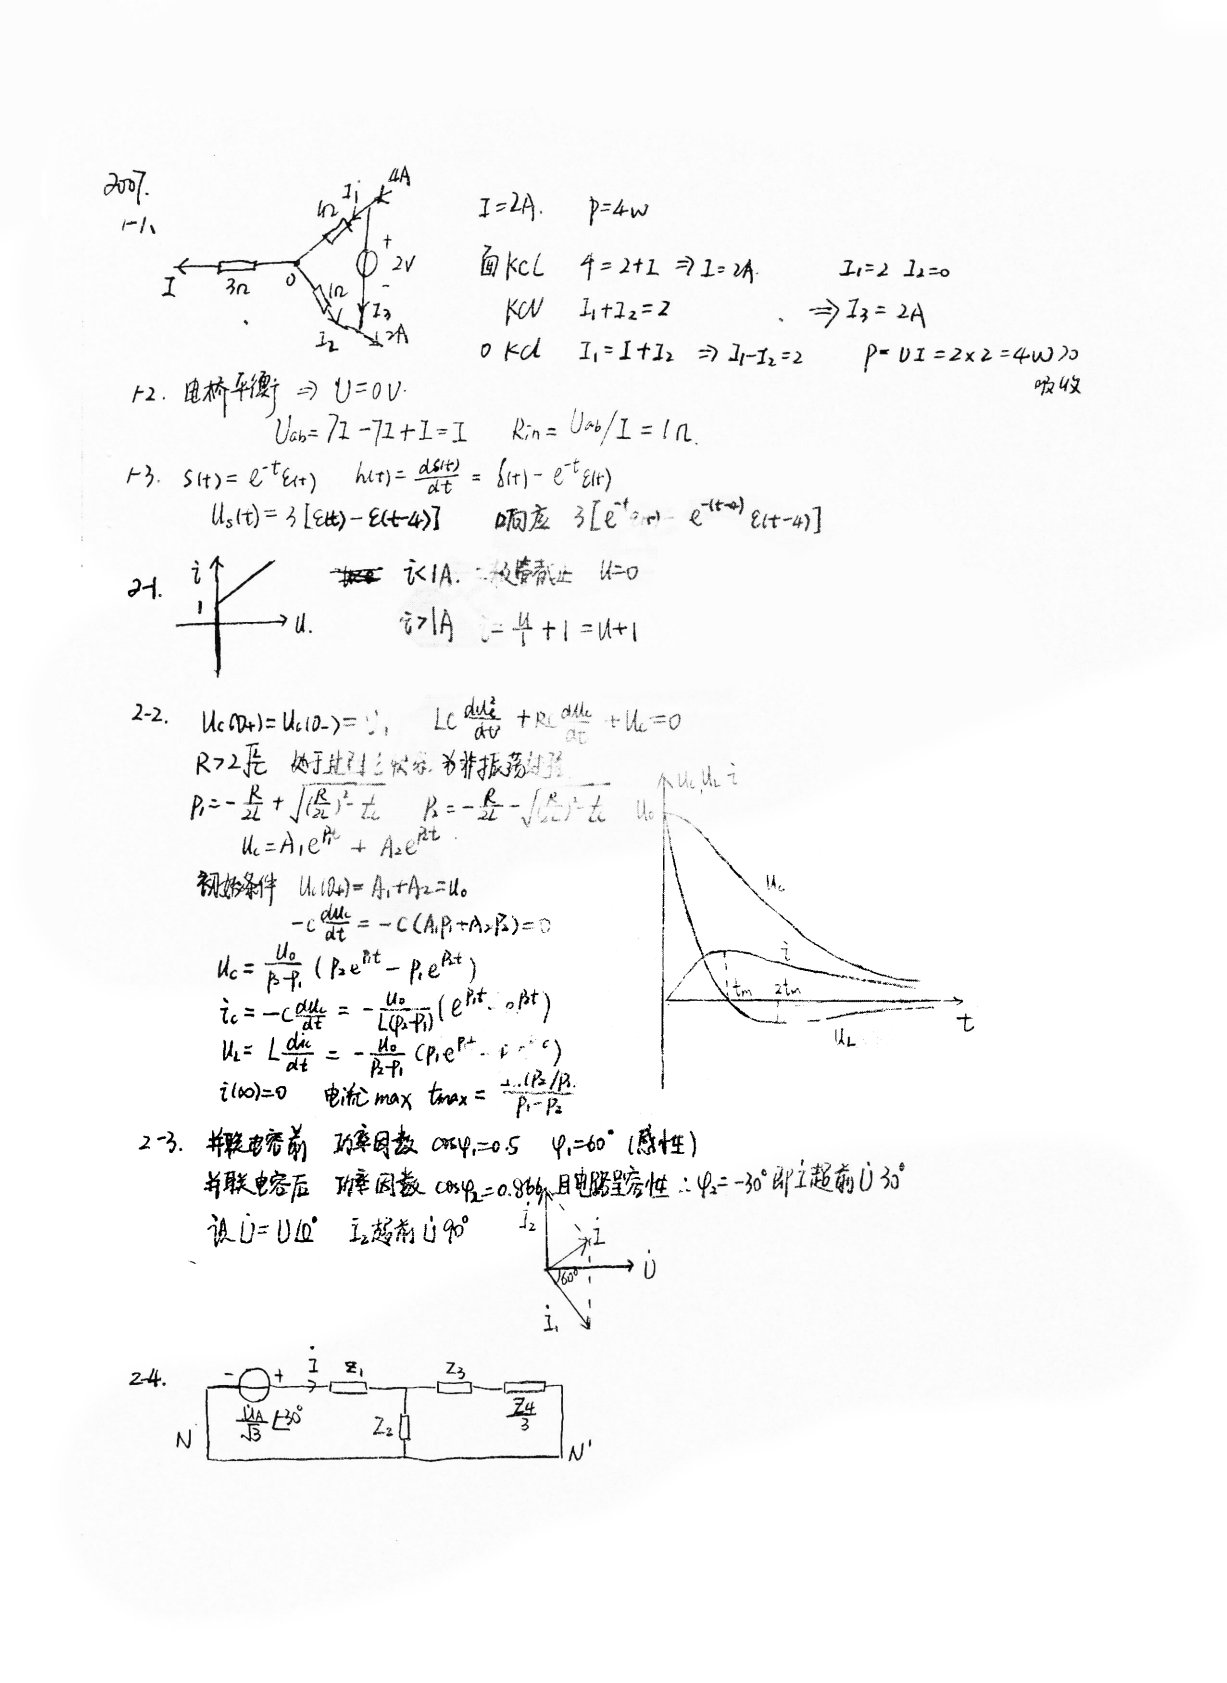 2007.
1-1、
I₁ 4A
1Ω
+
2V
-
I 3Ω 0 1Ω I₃
I₂ 2A
I=2A. P=4W
面KCL 4=2+I ⇒ I=2A. I₁=2 I₂=0
KVL I₁+I₂=2 ⇒ I₃=2A
0 KCL I₁=I+I₂ ⇒ I₁-I₂=2 P=UI=2×2=4W>0
吸收
1-2. 电桥平衡 ⇒ U=0V.
Uab=7I-7I+I=I Rin=Uab/I=1Ω.
1-3. s(t)=e^{-t}ε(t) h(t)=ds(t)/dt=δ(t)-e^{-t}ε(t)
Us(t)=3[ε(t)-ε(t-4)] 响应 3[e^{-t}ε(t)-e^{-(t-4)}ε(t-4)]
2-1. i 1 u.
i<1A. 二极管截止 u=0
i>1A i=u/1+1=u+1
2-2. Uc(0+)=Uc(0-)=U₀ LC duc²/dt²+RC duc/dt+Uc=0
R>2√(L/C) 为非振荡
P₁=-R/2L+√((R/2L)²-1/LC) P₂=-R/2L-√((R/2L)²-1/LC)
Uc=A₁e^{P₁t}+A₂e^{P₂t}
初始条件 Uc(0+)=A₁+A₂=U₀
-C duc/dt=-C(A₁P₁+A₂P₂)=0
Uc=U₀/(P₂-P₁)(P₂e^{P₁t}-P₁e^{P₂t})
ic=-C duc/dt=-U₀/L(P₂-P₁)(e^{P₁t}-e^{P₂t})
UL=L dic/dt=-U₀/(P₂-P₁)(P₁e^{P₁t}-
i(∞)=0 电流max tmax=ln(P₂/P₁)/(P₁-P₂)
Uc,UL i
U₀
Uc
i
tm 2tm
UL t
2-3. 并联电容前 功率因数 cosφ₁=0.5 φ₁=60° (感性)
并联电容后 功率因数 cosφ₂=0.866 且电路呈容性 ∴φ₂=-30° 即İ超前U̇ 30°
设U̇=U∠0° İ₂超前U̇ 90°
İ₂ İ
60° U̇
İ₁
2-4. - + İ Z₁ Z₃
U̇A/√3 ∠-30° Z₂ Z₄/3
N N'